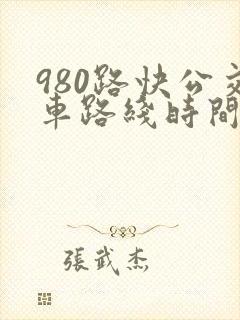 980路快公交
車路綫時間
張武杰